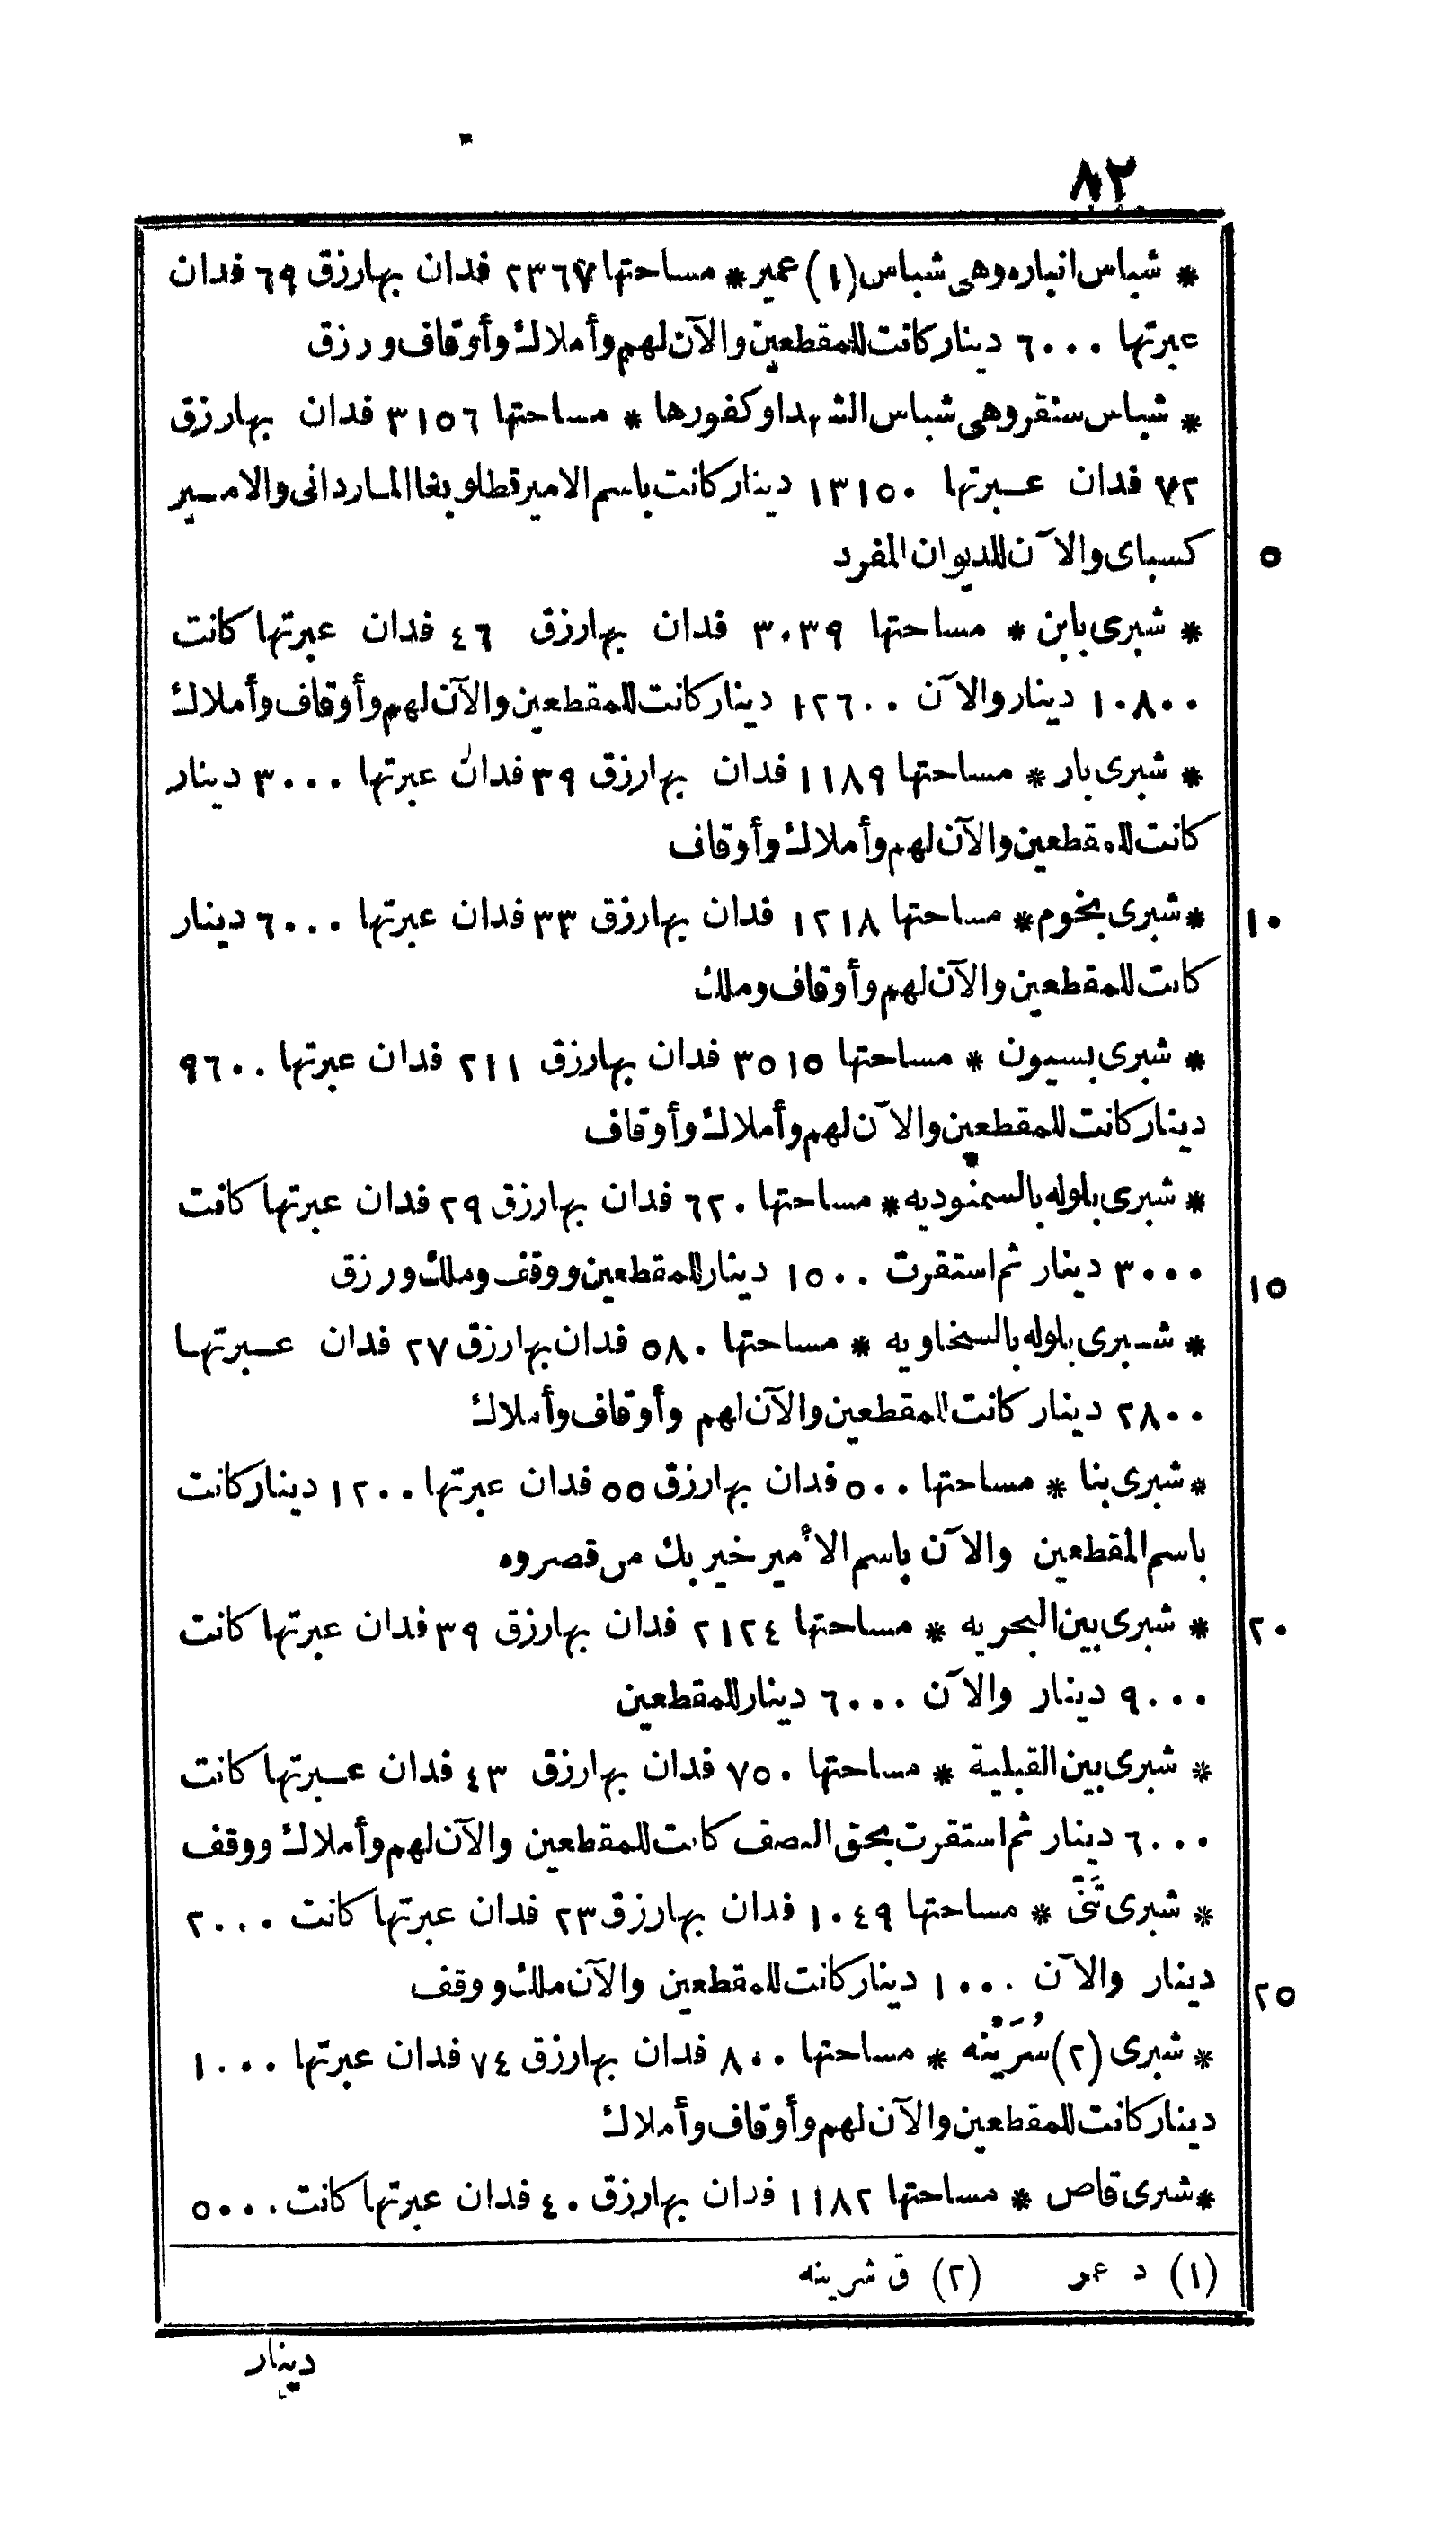 ٨٢
* شباس انباره وهى شباس (١) عمير * مساحتها ٢٣٦٧ فدان بها رزق ٦٩ فدان
عبرتها ٦٠٠٠ دينار كانت للمقطعين والآن لهم وأملاك وأوقاف ورزق
* شباس سنقر وهى شباس الشهدا وكفورها * مساحتها ٣١٥٦ فدان بها رزق
٧٢ فدان عبرتها ١٣١٥٠ دينار كانت باسم الامير قطلوبغا الماردانى والامير
كسباى والآن للديوان المفرد
٥
* شبرى بابن * مساحتها ٣٠٣٩ فدان بها رزق ٤٦ فدان عبرتها كانت
١٠٨٠٠ دينار والآن ١٢٦٠٠ دينار كانت للمقطعين والآن لهم وأوقاف وأملاك
* شبرى بار * مساحتها ١١٨٩ فدان بها رزق ٣٩ فدان عبرتها ٣٠٠٠ دينار
كانت للمقطعين والآن لهم وأملاك وأوقاف
* شبرى بخوم * مساحتها ١٢١٨ فدان بها رزق ٣٣ فدان عبرتها ٦٠٠٠ دينار
١٠
كانت للمقطعين والآن لهم وأوقاف وملك
* شبرى بسيون * مساحتها ٣٥١٥ فدان بها رزق ٢١١ فدان عبرتها ٩٦٠٠
دينار كانت للمقطعين والآن لهم وأملاك وأوقاف
* شبرى بلوله بالسمنوديه * مساحتها ٦٢٠ فدان بها رزق ٢٩ فدان عبرتها كانت
٣٠٠٠ دينار ثم استقرت ١٥٠٠ دينار للمقطعين ووقف وملك ورزق
١٥
* شبرى بلوله بالسخاويه * مساحتها ٥٨٠ فدان بها رزق ٢٧ فدان عبرتها
٢٨٠٠ دينار كانت للمقطعين والآن لهم وأوقاف وأملاك
* شبرى بنا * مساحتها ٥٠٠ فدان بها رزق ٥٥ فدان عبرتها ١٢٠٠ دينار كانت
باسم المقطعين والآن باسم الأمير خير بك من قصروه
* شبرى بين البحريه * مساحتها ٢١٢٤ فدان بها رزق ٣٩ فدان عبرتها كانت
٢٠
٩٠٠٠ دينار والآن ٦٠٠٠ دينار للمقطعين
* شبرى بين القبلية * مساحتها ٧٥٠ فدان بها رزق ٤٣ فدان عبرتها كانت
٦٠٠٠ دينار ثم استقرت بحق النصف كانت للمقطعين والآن لهم وأملاك ووقف
* شبرى تَنّى * مساحتها ١٠٤٩ فدان بها رزق ٢٣ فدان عبرتها كانت ٢٠٠٠
دينار والآن ١٠٠٠ دينار كانت للمقطعين والآن ملك ووقف
٢٥
* شبرى (٢) سُرَيْنه * مساحتها ٨٠٠ فدان بها رزق ٧٤ فدان عبرتها ١٠٠٠
دينار كانت للمقطعين والآن لهم وأوقاف وأملاك
* شبرى قاص * مساحتها ١١٨٢ فدان بها رزق ٤٠ فدان عبرتها كانت ٥٠٠٠
(١) د عمر (٢) ق شرينه
دينار